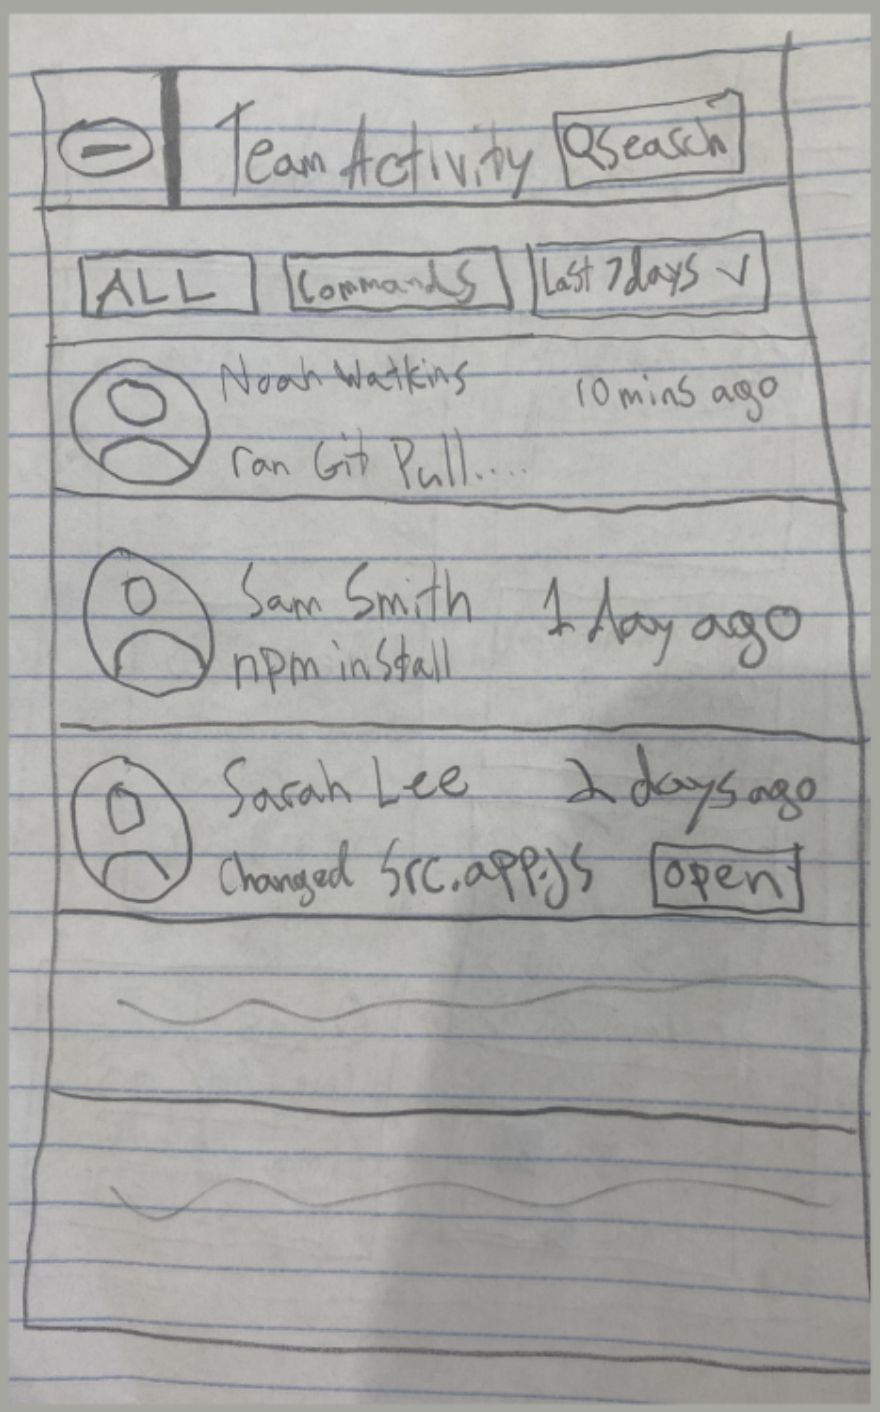 Team Activity Search
ALL Commands Last 7days
Noah Watkins 10 mins ago
ran Git Pull....
Sam Smith 1 day ago
npm install
Sarah Lee 2 days ago
Changed Src.app.JS open